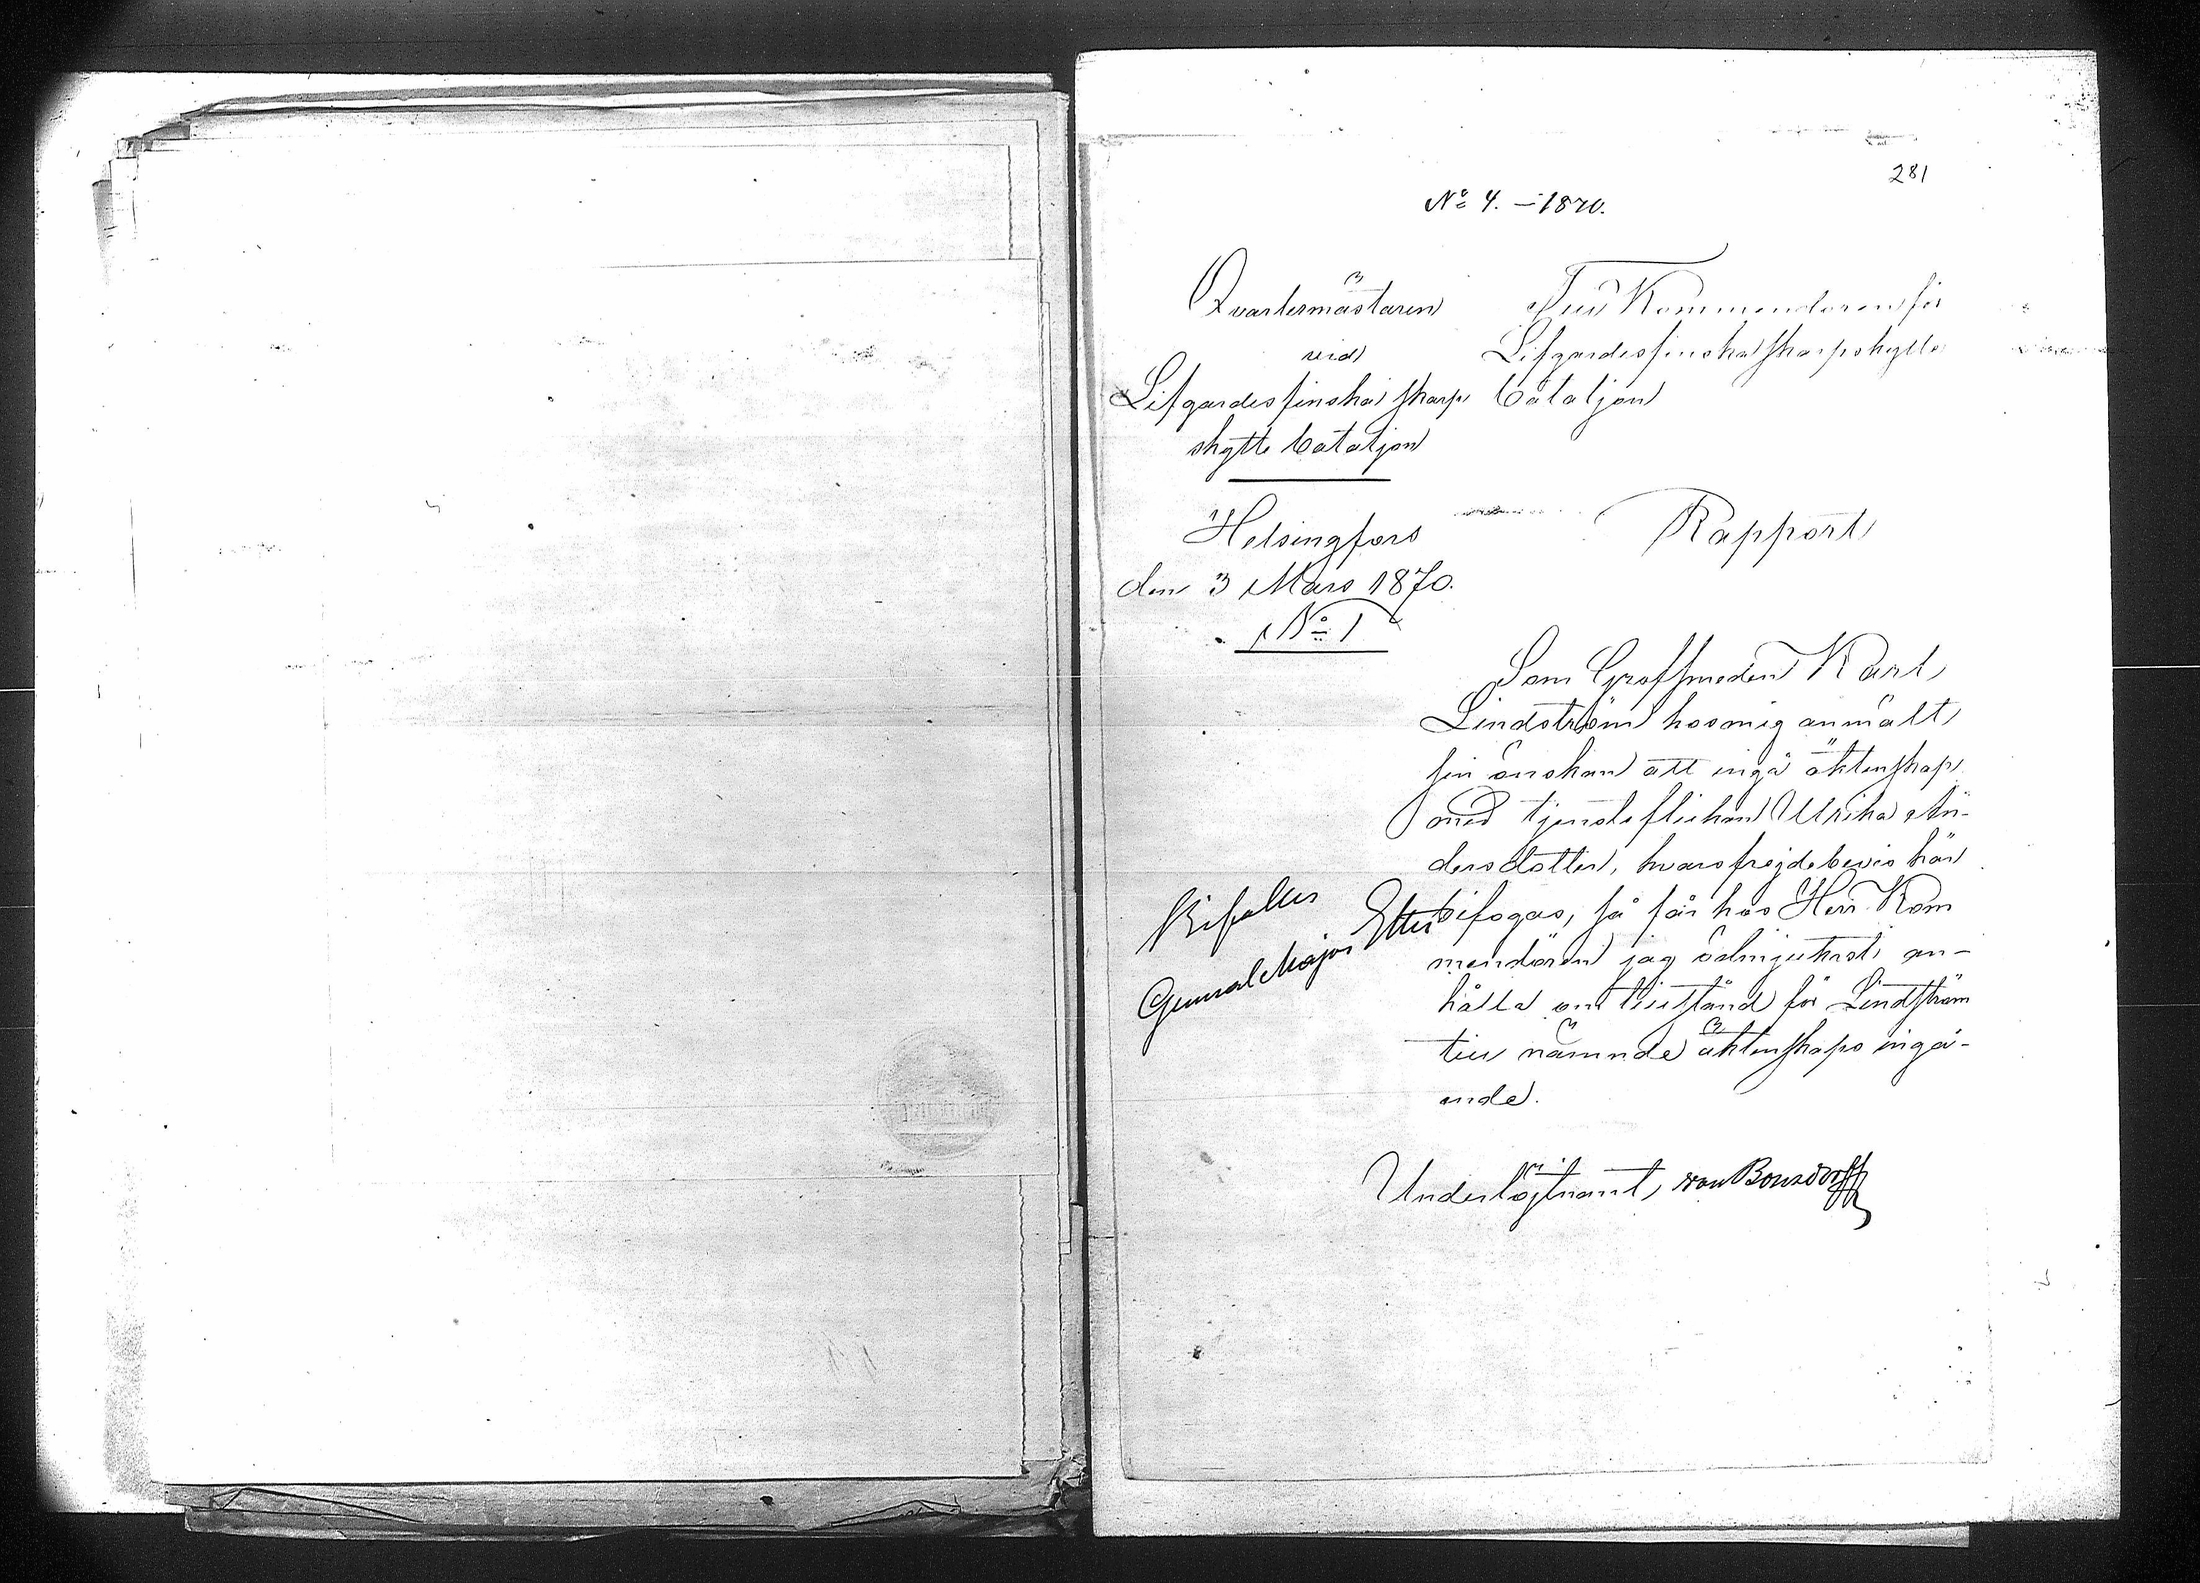 281
No 4. – 1870.
Qvartermästaren
vid
Lifgardes finska skarp
skytte bataljon
Helsingfors
den 3 Mars 1870.
No 1
Till Kommendören för
Lifgardes finska skarpskytte
bataljon
Rapport
Som Grofsmeden Karl
Lindström hos mig anmält
sin önskan att ingå äktenskap
med tjensteflickan Ulrika An-
dersdotter, hvars frejdebevis här
bifogas, så får hos Herr Kom
mendören jag ödmjukast an-
hålla om tillstånd för Lindström
till nämnde äktenskaps ingå-
ende.
Underlöjtnant von Bonsdorff
Bifalles
General Major Etter